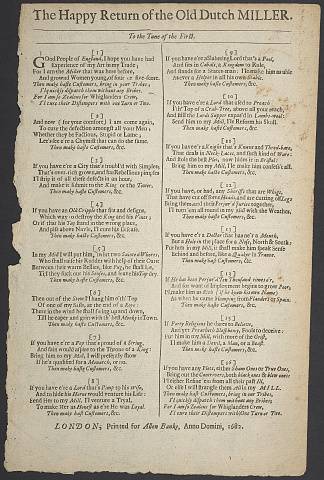 The Happy Return of the Old Dutch MILLER.
To the Tune of the First.
[1]
GOod People of England, I hope you have had
Experience of my former Trade;
For I am the Miller that was here before,
And ground Women young, of four or five-score.
Then make haste Customers, bring in your Tribes;
I quickly dispatch them without any Bribes.
For I am so Zealous for Whiglanders Crew,
I'le cure their Distempers with one Turn or Two.
[2]
And now (for your comfort) I am come again,
To cure the defection amongst all your Men;
Whether they be Factious, Stupid or Lame;
Here's ne're a Chymist that can do the same.
Then make haste Customers, &c.
[3]
If you have e're a City that's troubled with Simples,
That's over-rich grown, and has Rebellious pimples
I'll drein it of all their defects in an hour,
And make it submit to the King or the Tower.
Then make haste Customers, &c.
[4]
If you have an Old Cripple that has a design,
Which way to destroy the King and his Line;
Or if that his Tap stand in the wrong place,
And piss above Navle, I'll cure his
Then make haste Customers, &c.
[5]
In my Mill I will put him, 'twixt two Stones of Whores,
Who shall twist his Rudder with help of their Oars
Between their warm Bellies, like Pug, he shall lie,
Till they suck out his Issues, and leave his Tap dry.
Then make haste Customers, &c.
[6]
Then out of the Stern I'll hang him o'th' Top
Of one of my Sails, at the end of a Rope:
There in the wind he shall swing up and down,
Till he caper and grin with th' best Monky in Town.
Then make haste Customers, &c.
[7]
If you have e're a Fop that's proud of a String,
And fain would aspire to the Throne of a King:
Bring him to my Mill, I will presently shew
If he's qualified for a Monarch, or no.
Then make haste Customers, &c.
[8]
If you have e're a Lord that's Pimp to his Wife,
And to hide his Horns would venture his Life:
Send Her to my Mill, I'll venture a Tryal,
To make Her as Honest as e're He was Loyal.
Then make haste Customers, &c.
[9]
If you have e're a blustering Lord that's a Peer,
And sits in Cabals, a Kingdom to Rule,
And stands for a States-man: I'le make him as able
As ever a Helper in all his own Stable.
Then make haste Customers, &c.
[10]
If you have e're a Lord that us'd to Preach
I'th' Top of a Crab-Tree, above all your reach,
And fill'd the Lords Supper equip'd in Lambs-wool:
Send him to my Mill, I'le Refine his Skull.
Then make haste Customers, &c.
[11]
If you have e're a Knight that's Known and Thred-bare,
That deals in Nicky-Lacee, and such kind of Ware:
And Robs the Poor, now hides it in Bristol:
Bring him to my Mill, I'le make him confess't all.
Then make haste Customers, &c.
[12]
If you have, or had, any Sheriffs that are Whigs,
That have cut off some Heads, and are cutting off Legs
Bring them and their Perjur'd Juries together,
I'll turn 'em all round in my Mill with the Weather,
Then make haste Customers, &c.
[13]
If you have e're a Doctor that hasn't a Mouth,
But a Hole in the place for a Nose, North & South:
Put him in my Mill, it shall make him speak Sense
Behind and before, like a Quaker in Trance.
Then make haste Customers, &c.
[14]
If He has been Perjur'd Ten Thousand times o're,
And for want of Employment begins to grow Poor,
I'll make him as Rich (if he know his own Name)
As when he came Humping from Flanders or Spain.
Then make haste Customers, &c.
[15]
If Party Religions be there to Believe,
And yet Preacheth Blasphemy, Fools to deceive:
Put him in my Mill, with more of the Crest,
I'll make him a Devil, a Man, or a Beast.
Then make haste Customers, &c.
[16]
If you have any Plots, either Sham Ones or True Ones,
Bring out the Contrivers, both black ones & blew ones:
I'll either Refine 'em from all their past Ill,
Or else I will through them all in my MILL.
Then make haste Customers, bring in your Tribes,
I'll quickly dispatch them without any Bribes;
For I am so Zealous for Whiglanders Crew,
I'll cure their Distempers with One Turn or Two.
LONDON; Printed for Allen Banks, Anno Domini, 1682.